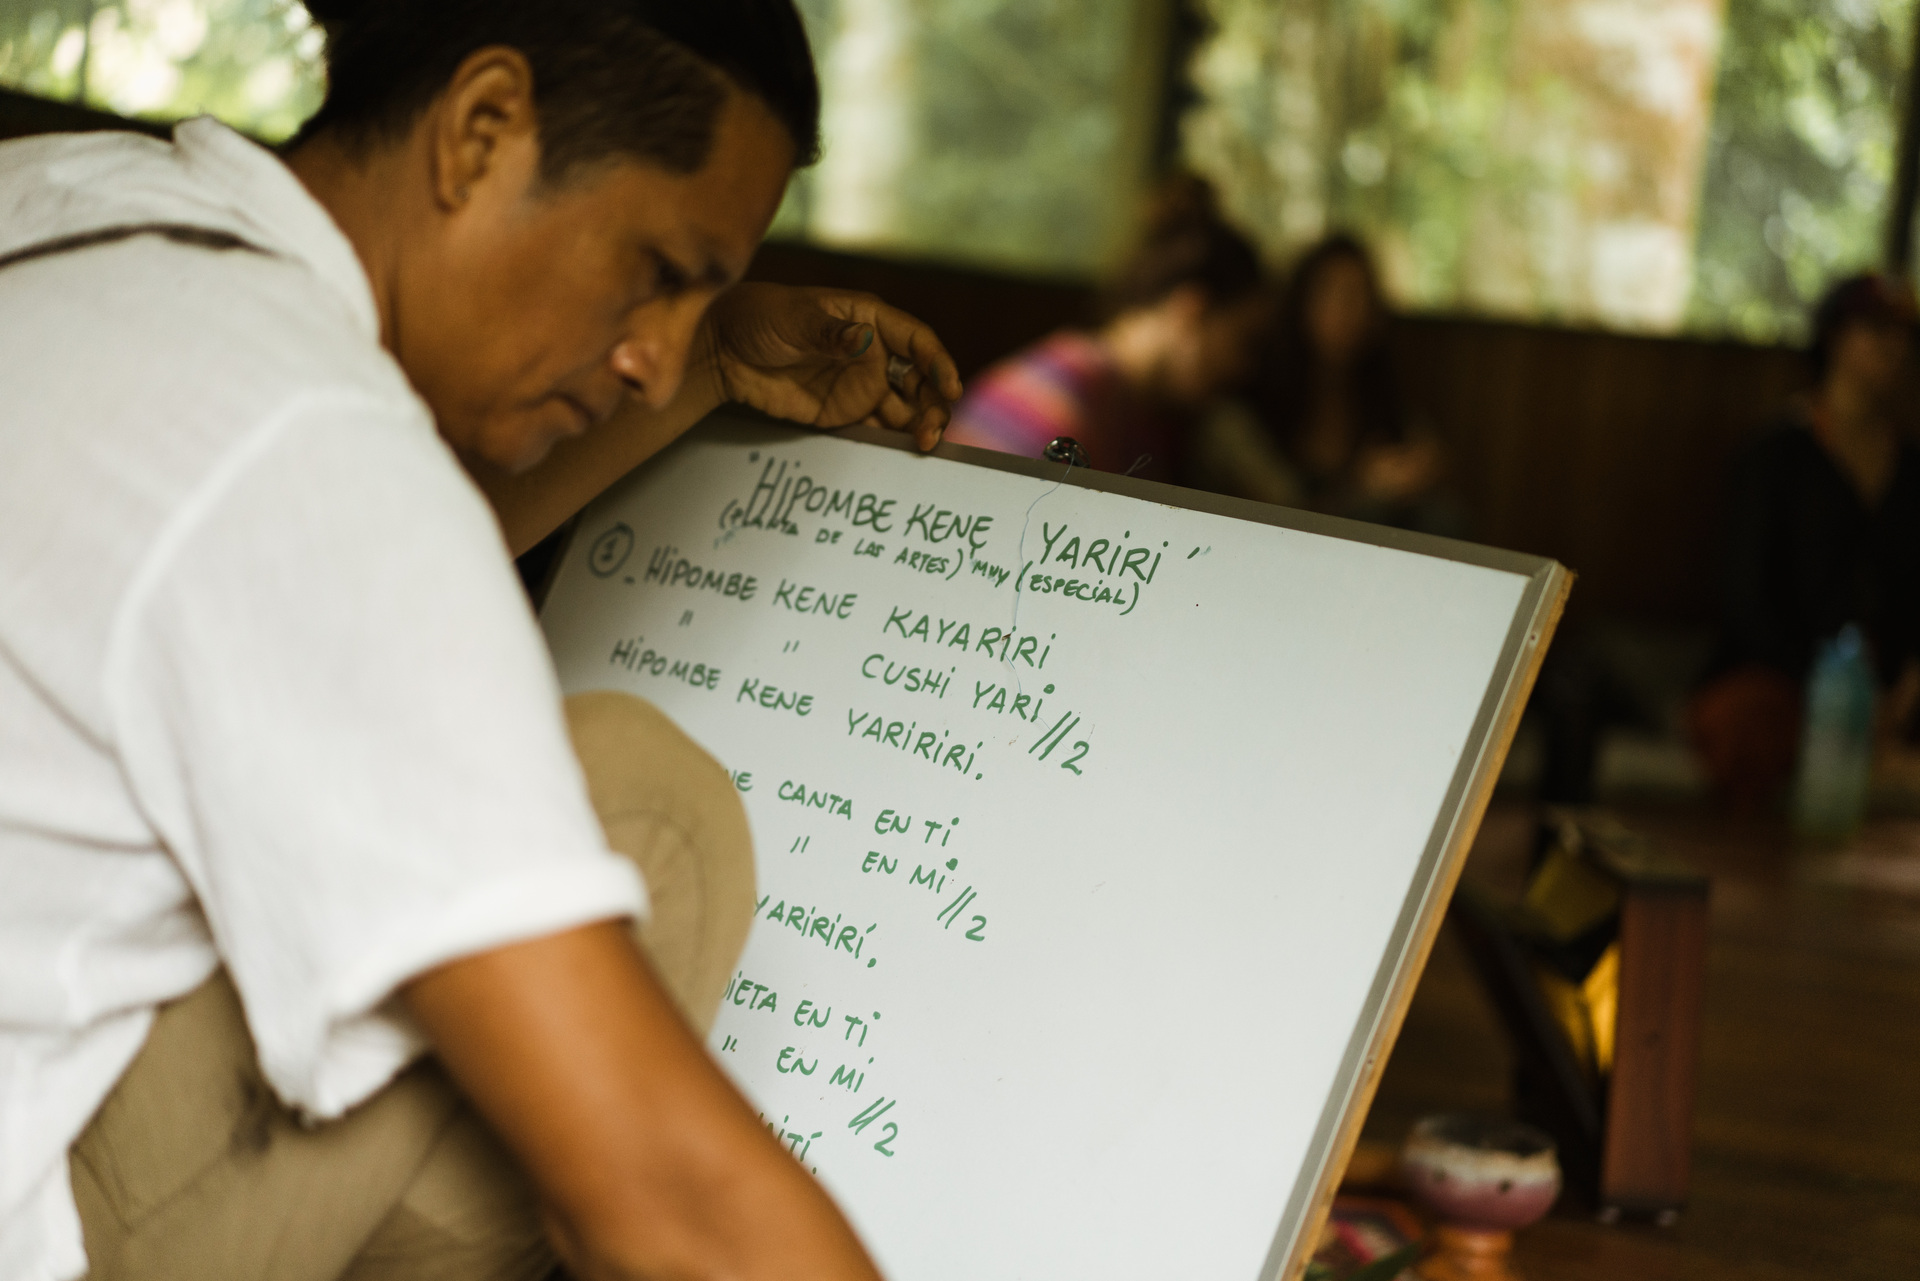 "HIPOMBE KENE YARIRI"
(PLANTA DE LAS ARTES) "MUY (ESPECIAL)
① - HIPOMBE KENE KAYARIRI
" " CUSHI YARI //2
HIPOMBE KENE YARIRIRI.
CANTA EN TI
" EN MI //2
YARIRIRÍ.
EN TI
" EN MI //2